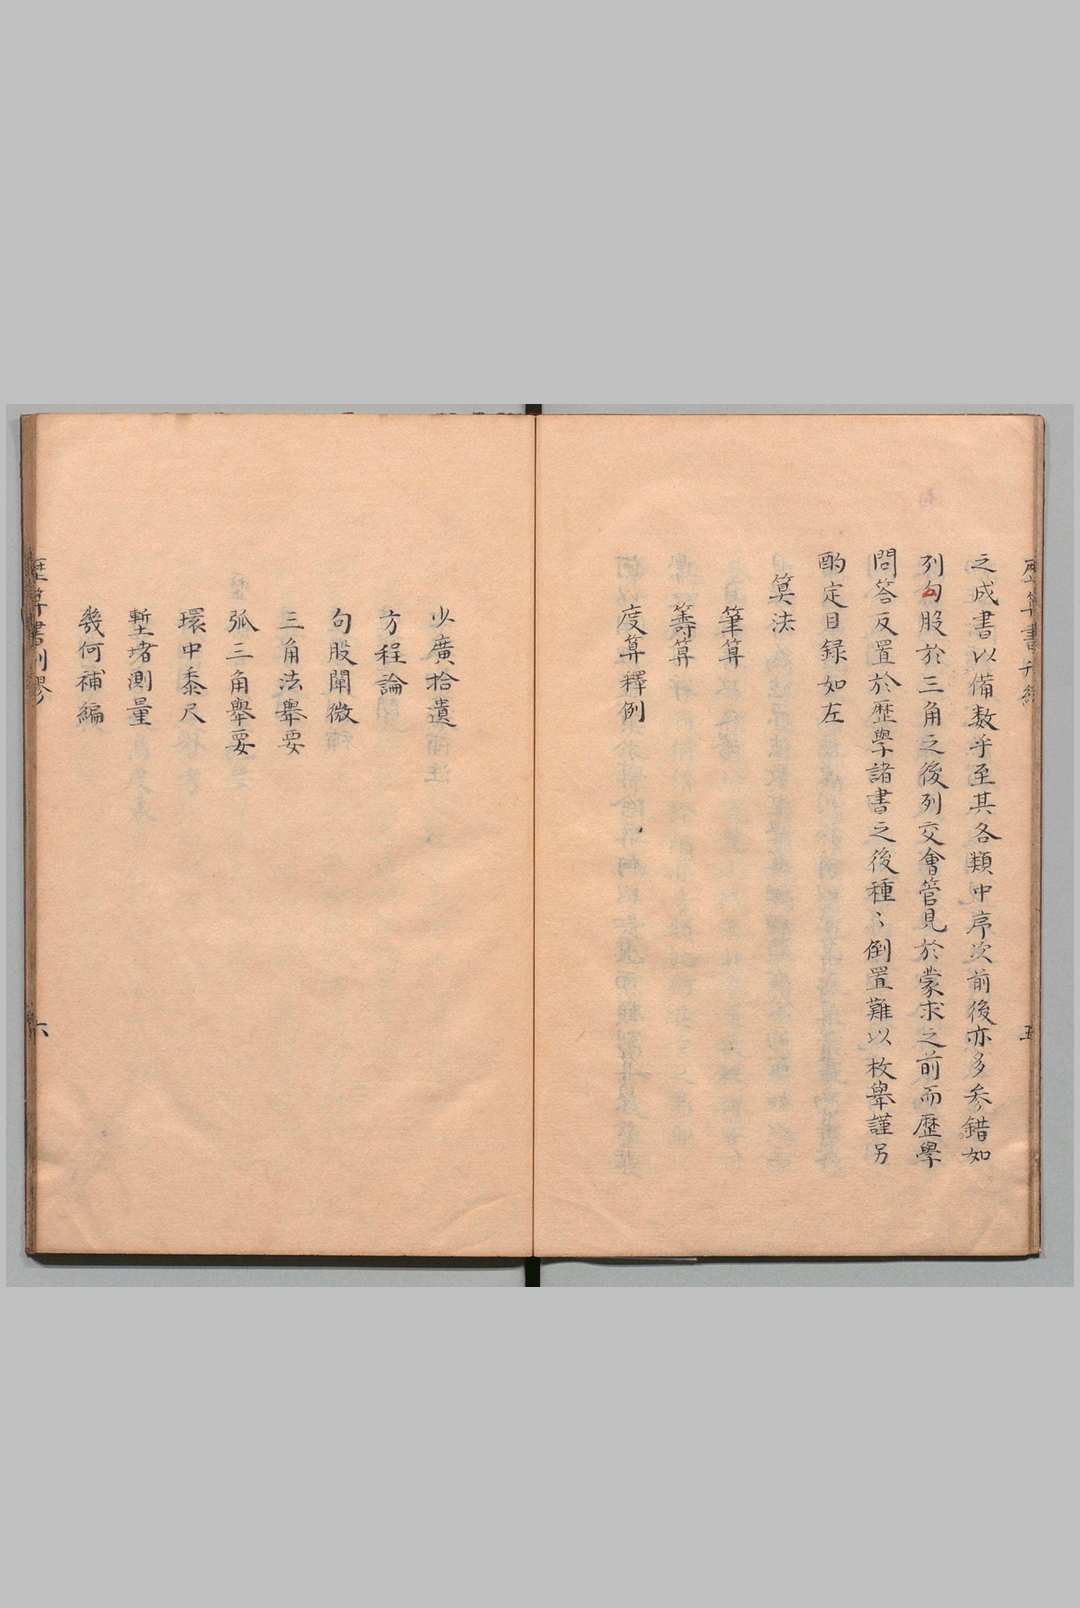 之成書以備数乎至其各類中序次前後亦多参錯如
列句股於三角之後列交會管見於蒙求之前而歴學
問答反置於歴學諸書之後種〻倒置難以枚舉謹另
酌定目録如左
算法
筆算
籌算
度算釋例
少廣拾遺
方程論
句股闡微
三角法舉要
弧三角舉要
環中黍尺
塹堵測量
幾何補編
歴算書刊謬
六